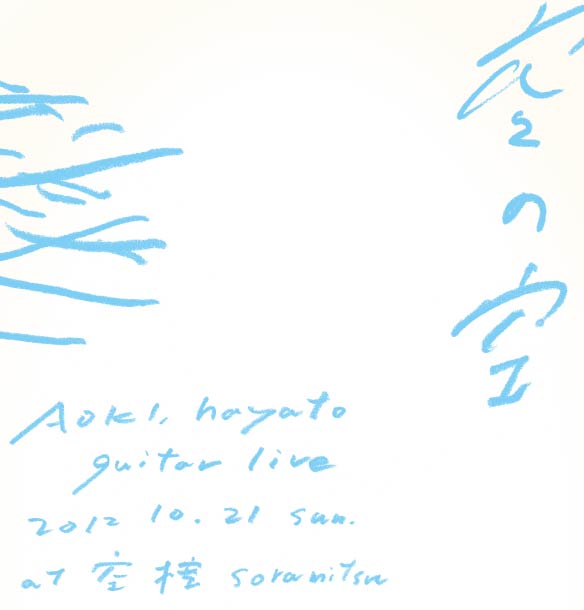 空の空
Aoki, hayato
guitar live
2012 10. 21 sun.
at 空櫁 soramitsu